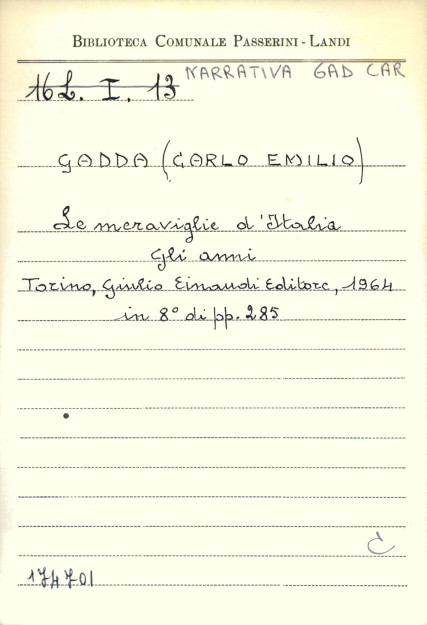 BIBLIOTECA COMUNALE PASSERINI - LANDI
NARRATIVA GAD CAR
16 L. I. 13
GADDA (CARLO EMILIO)
Le meraviglie d'Italia
Gli anni
Torino, Giulio Einaudi Editore, 1964
in 8° di pp. 285
C
174701